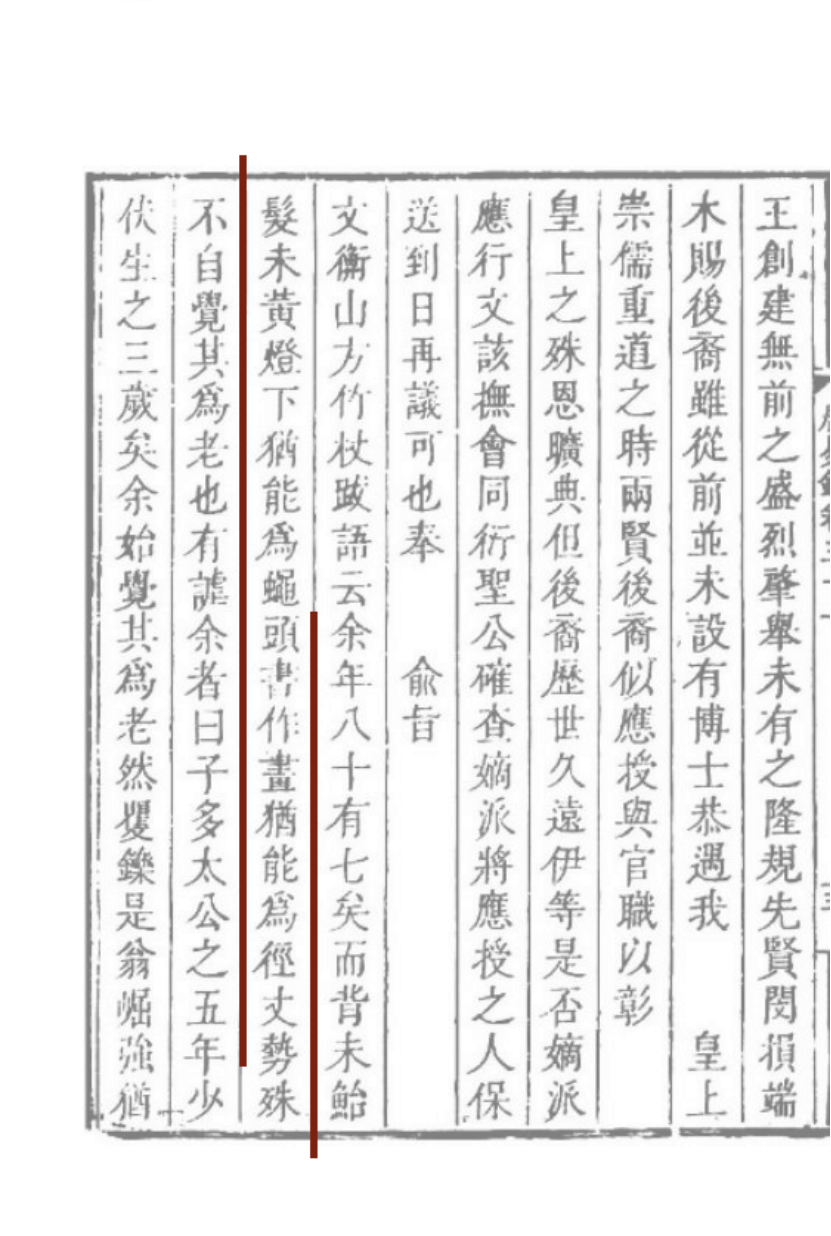 王創建無前之盛烈肇舉未有之隆規先賢閔損端
木賜後裔雖從前並未設有博士恭遇我 皇上
崇儒重道之時兩賢後裔似應授與官職以彰
皇上之殊恩曠典但後裔歷世久遠伊等是否嫡派
應行文該撫會同衍聖公確查嫡派將應授之人保
送到日再議可也奉 兪旨
文衡山方竹杖跋語云余年八十有七矣而背未鮐
髮未黃燈下猶能爲蠅頭書作畫猶能爲徑丈勢殊
不自覺其爲老也有謔余者曰子多太公之五年少
伏生之三歲矣余始覺其爲老然矍鑠是翁崛強猶